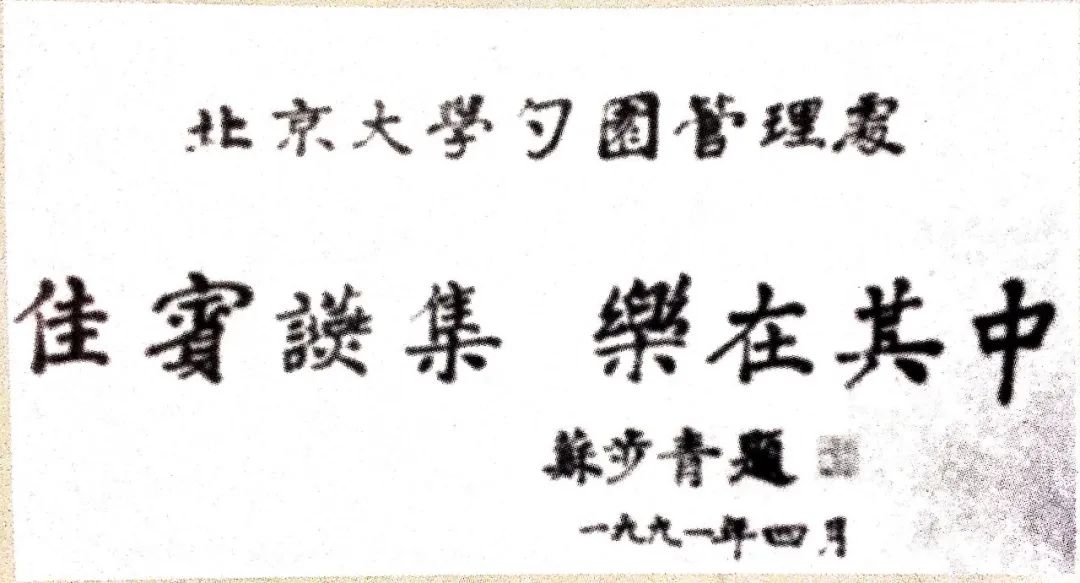 北京大學勺園管理處
佳賓讌集 樂在其中
蘇步青題
一九九一年四月